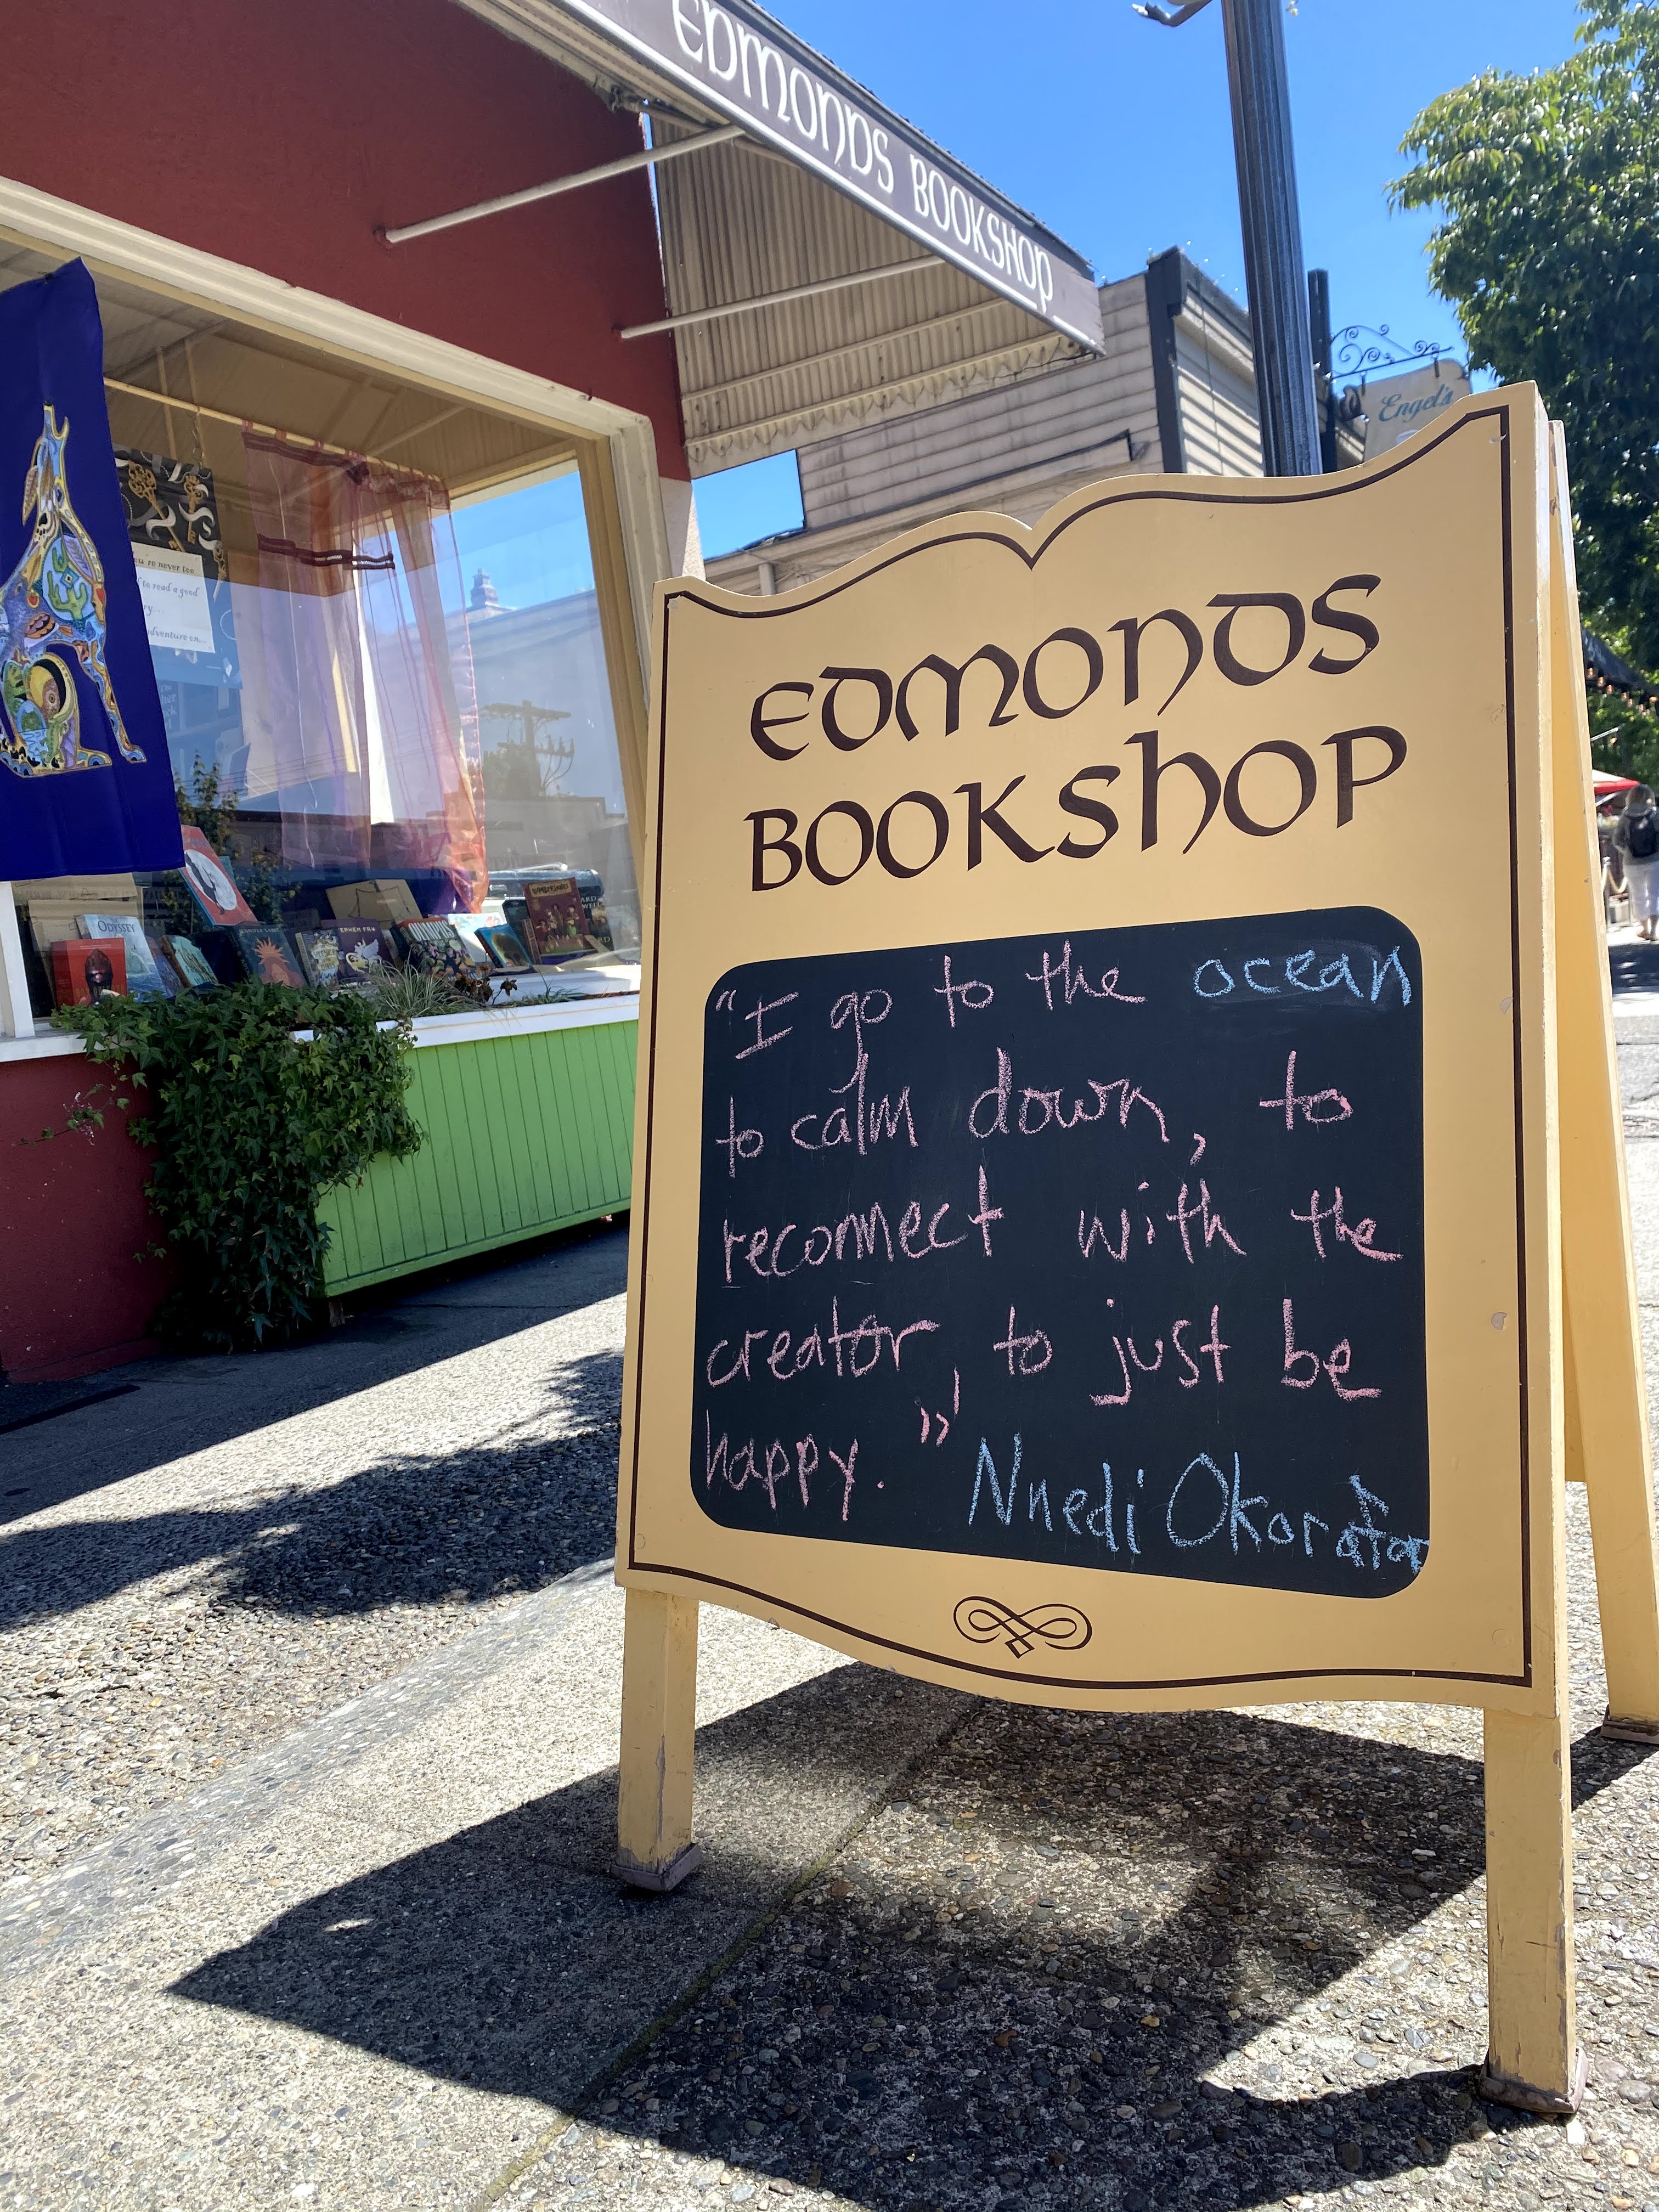 EDMONDS BOOKSHOP
Engel's
EDMONDS
BOOKSHOP
"I go to the ocean
to calm down, to
reconnect with the
creator, to just be
happy."
Nnedi Okorafor
to read a good
ODYSSEY